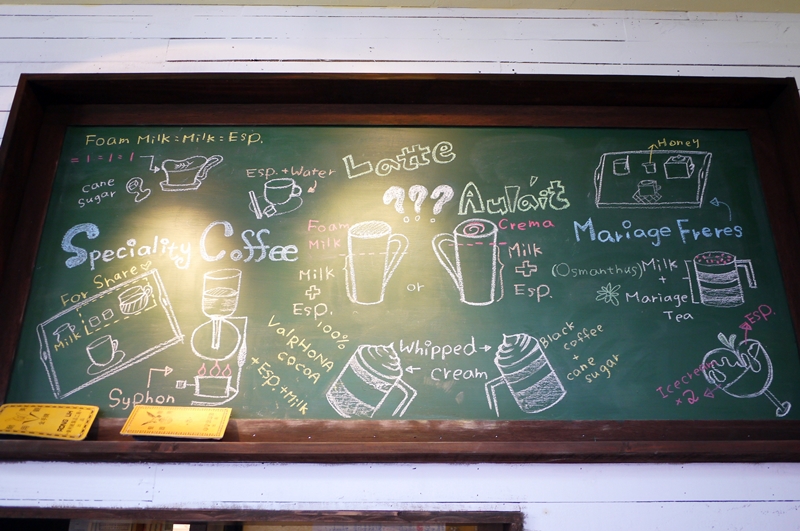 Foam Milk : Milk : Esp.
= 1 = 1 = 1
cane
sugar
Esp. + Water
Latte
???
Aulait
Honey
Mariage Freres
Speciality Coffee
For Share
Milk
Syphon
Foam
Milk
Milk
+
Esp.
or
Crema
Milk
+
Esp.
(Osmanthus) Milk
+
Mariage
Tea
100%
ValRHONA
COCOA
+ Esp. + Milk
Whipped
cream
Black
coffee
+
cane
sugar
Esp.
Icecream
x2